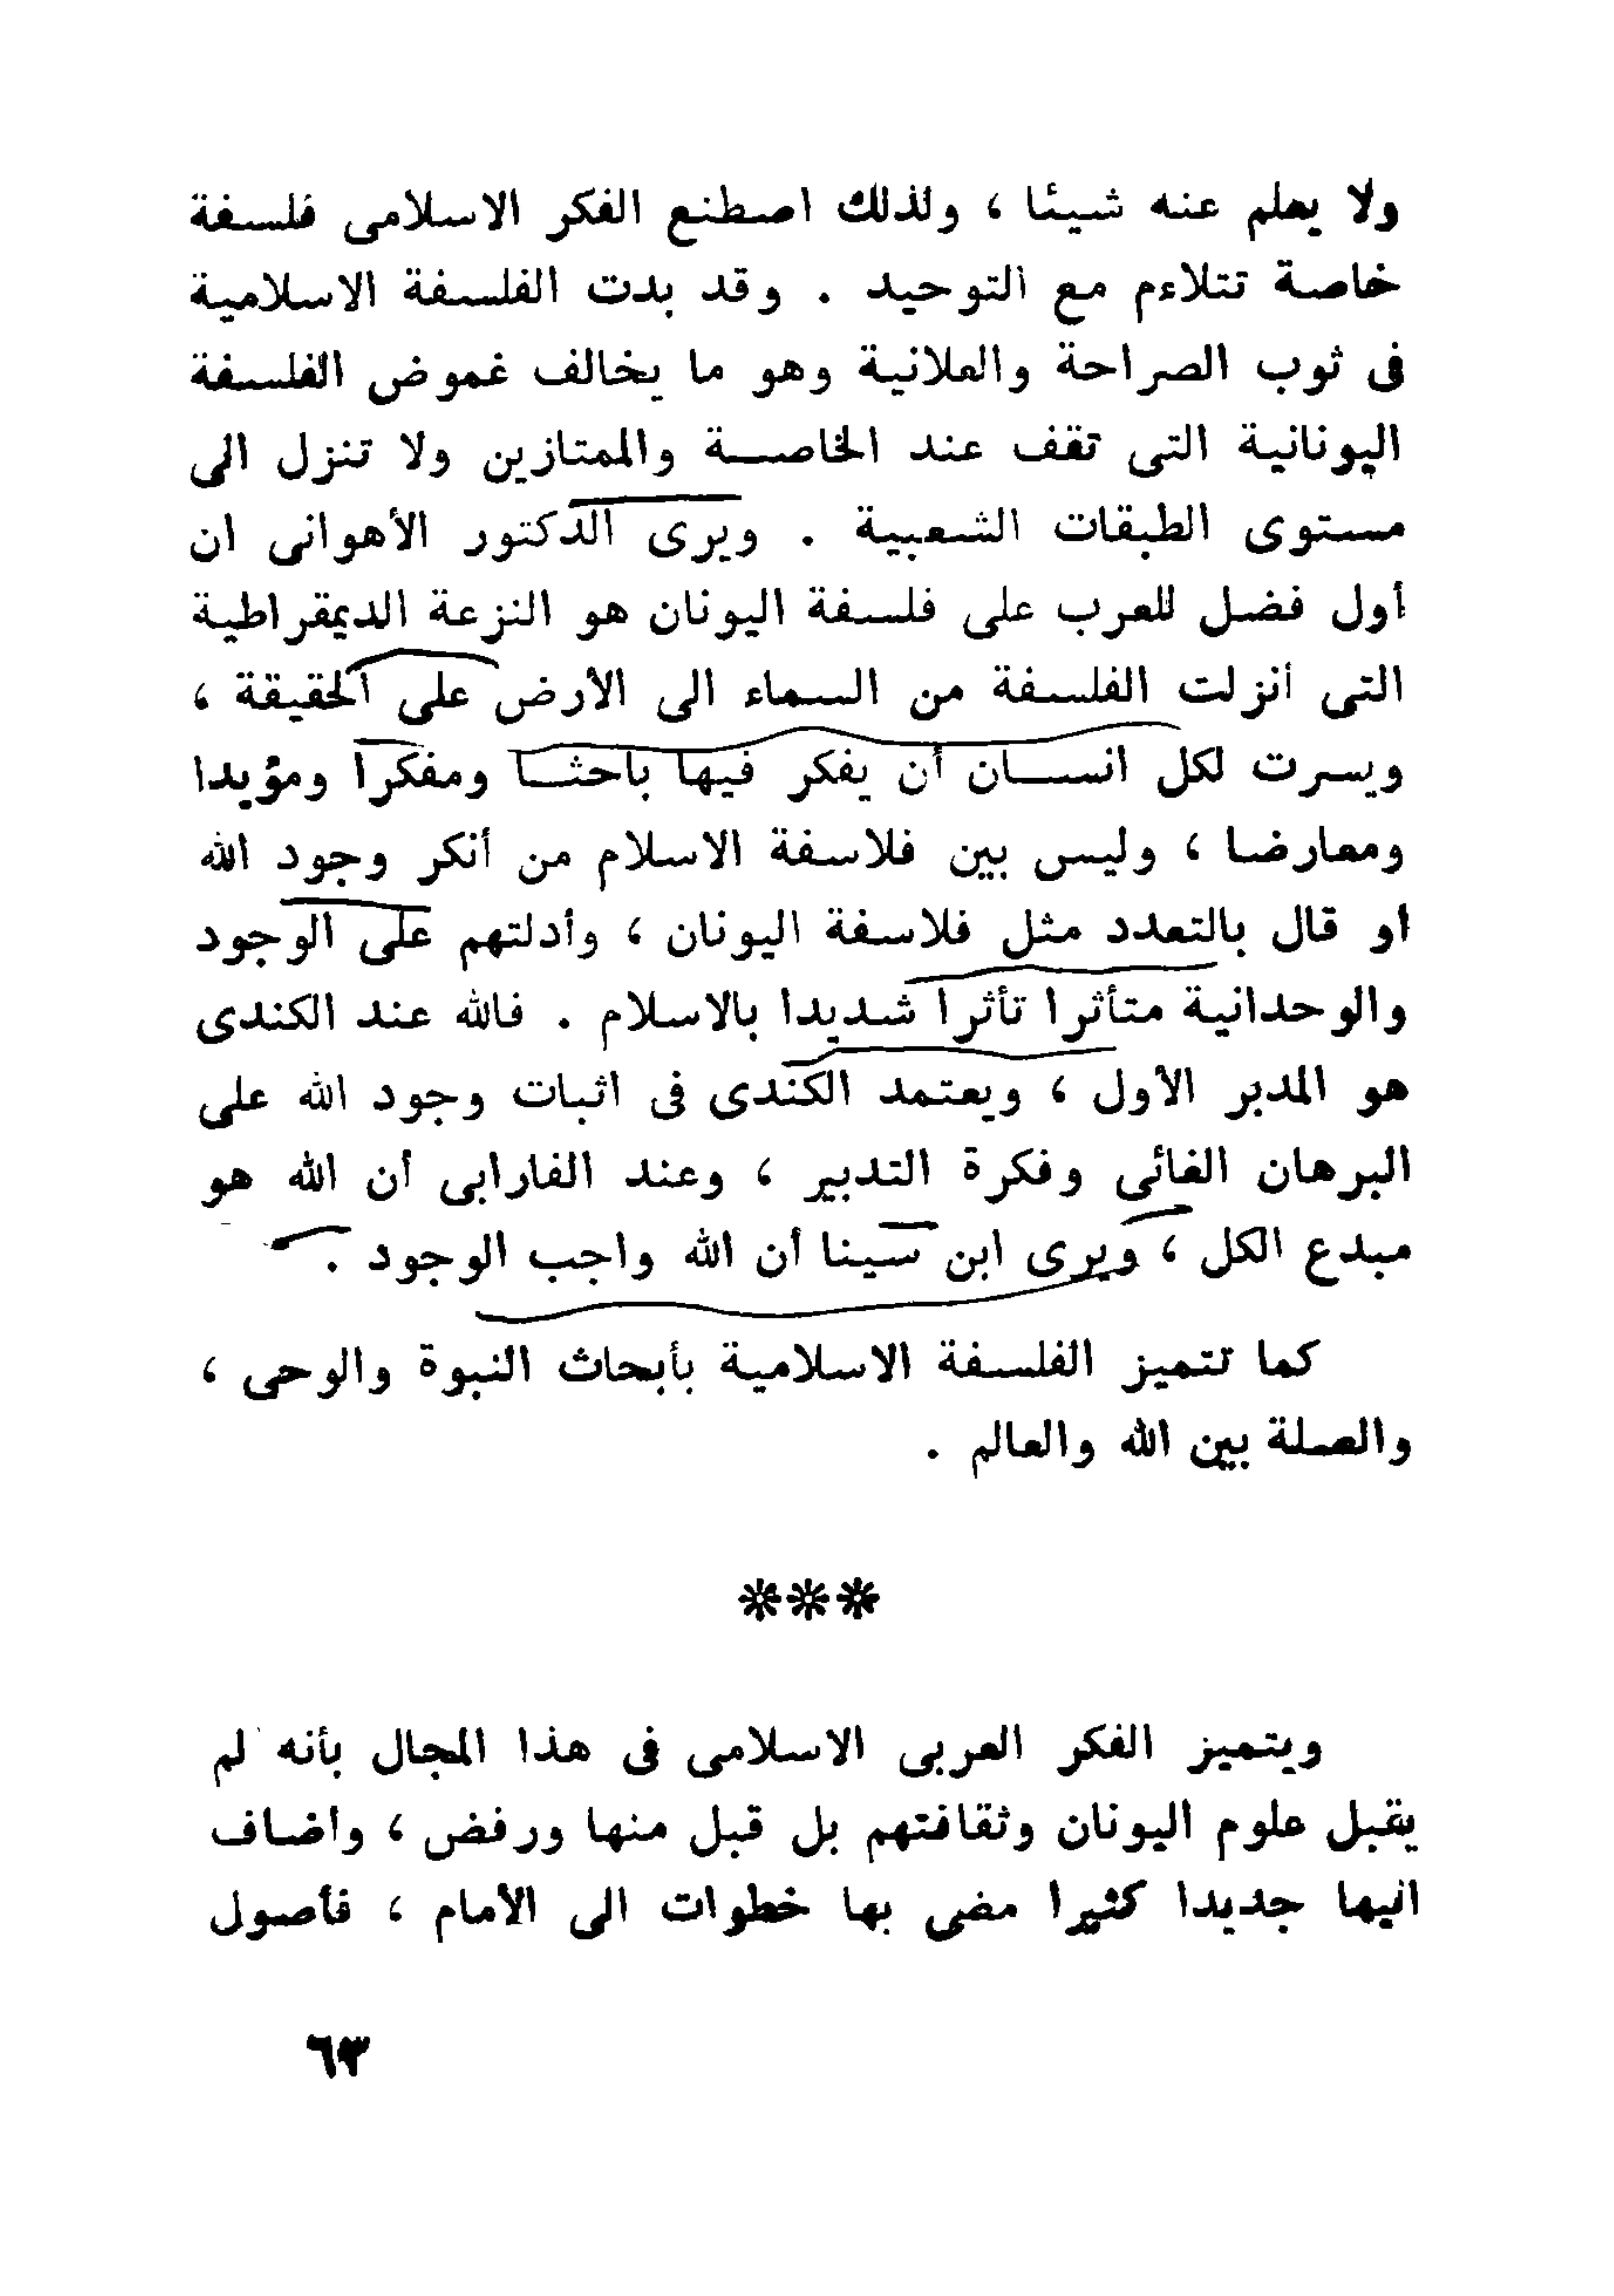 ولا يعلم عنه شيئا ، ولذلك اصطنع الفكر الاسلامى فلسفة
خاصة تتلاءم مع التوحيد . وقد بدت الفلسفة الاسلامية
فى ثوب الصراحة والعلانية وهو ما يخالف غموض الفلسفة
اليونانية التى تقف عند الخاصة والممتازين ولا تنزل الى
مستوى الطبقات الشعبية . ويرى الدكتور الأهوانى ان
أول فضل للعرب على فلسفة اليونان هو النزعة الديمقراطية
التى أنزلت الفلسفة من السماء الى الأرض على الحقيقة ،
ويسرت لكل انسان أن يفكر فيها باحثا ومفكرا ومؤيدا
ومعارضا ، وليس بين فلاسفة الاسلام من أنكر وجود الله
او قال بالتعدد مثل فلاسفة اليونان ، وأدلتهم على الوجود
والوحدانية متأثرا تأثرا شديدا بالاسلام . فالله عند الكندى
هو المدبر الأول ، ويعتمد الكندى فى اثبات وجود الله على
البرهان الغائى وفكرة التدبير ، وعند الفارابى أن الله هو
مبدع الكل ، ويرى ابن سينا أن الله واجب الوجود .
كما تتميز الفلسفة الاسلامية بأبحاث النبوة والوحى ،
والصلة بين الله والعالم .
***
ويتميز الفكر العربى الاسلامى فى هذا المجال بأنه لم
يقبل علوم اليونان وثقافتهم بل قبل منها ورفض ، واضاف
اليها جديدا كثيرا مضى بها خطوات الى الأمام ، فأصول
٦٣